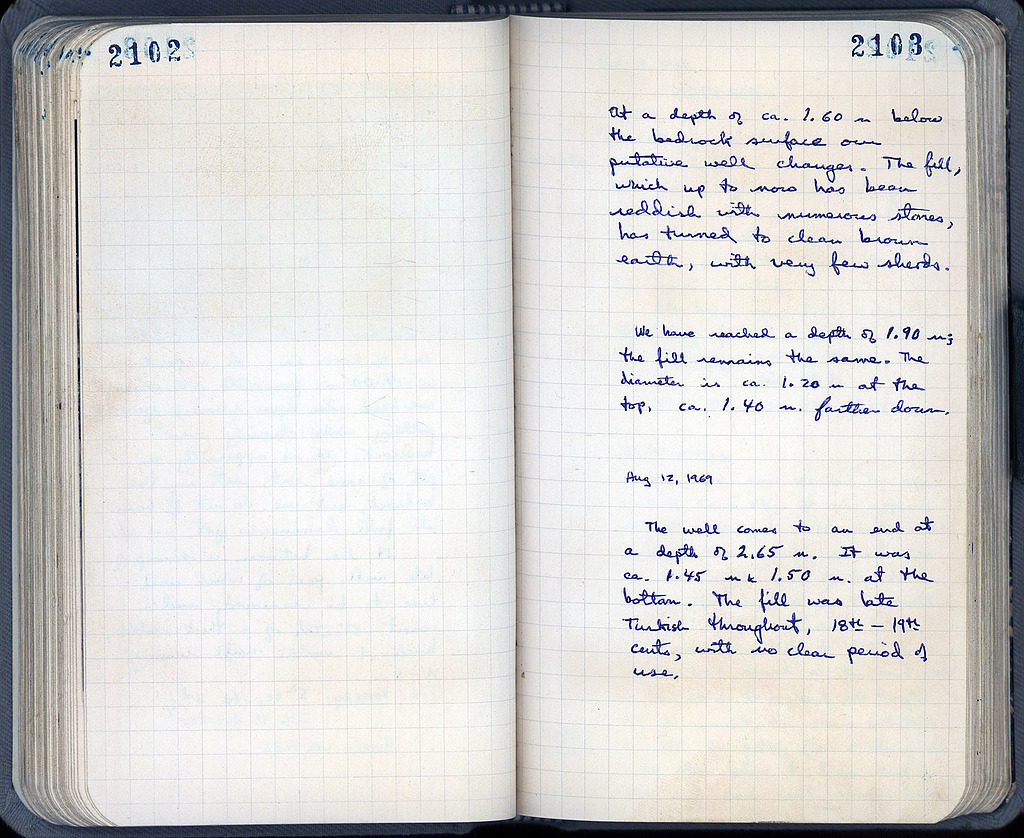 2102
2103
At a depth of ca. 1.60 m below
the bedrock surface our
putative well changes. The fill,
which up to now has been
reddish with numerous stones,
has turned to clean brown
earth, with very few sherds.
We have reached a depth of 1.90 m;
the fill remains the same. The
diameter is ca. 1.20 m at the
top, ca. 1.40 m. farther down.
Aug 12, 1969
The well comes to an end at
a depth of 2.65 m. It was
ca. 1.45 m x 1.50 m. at the
bottom. The fill was late
Turkish throughout, 18th – 19th
cents, with no clear period of
use.